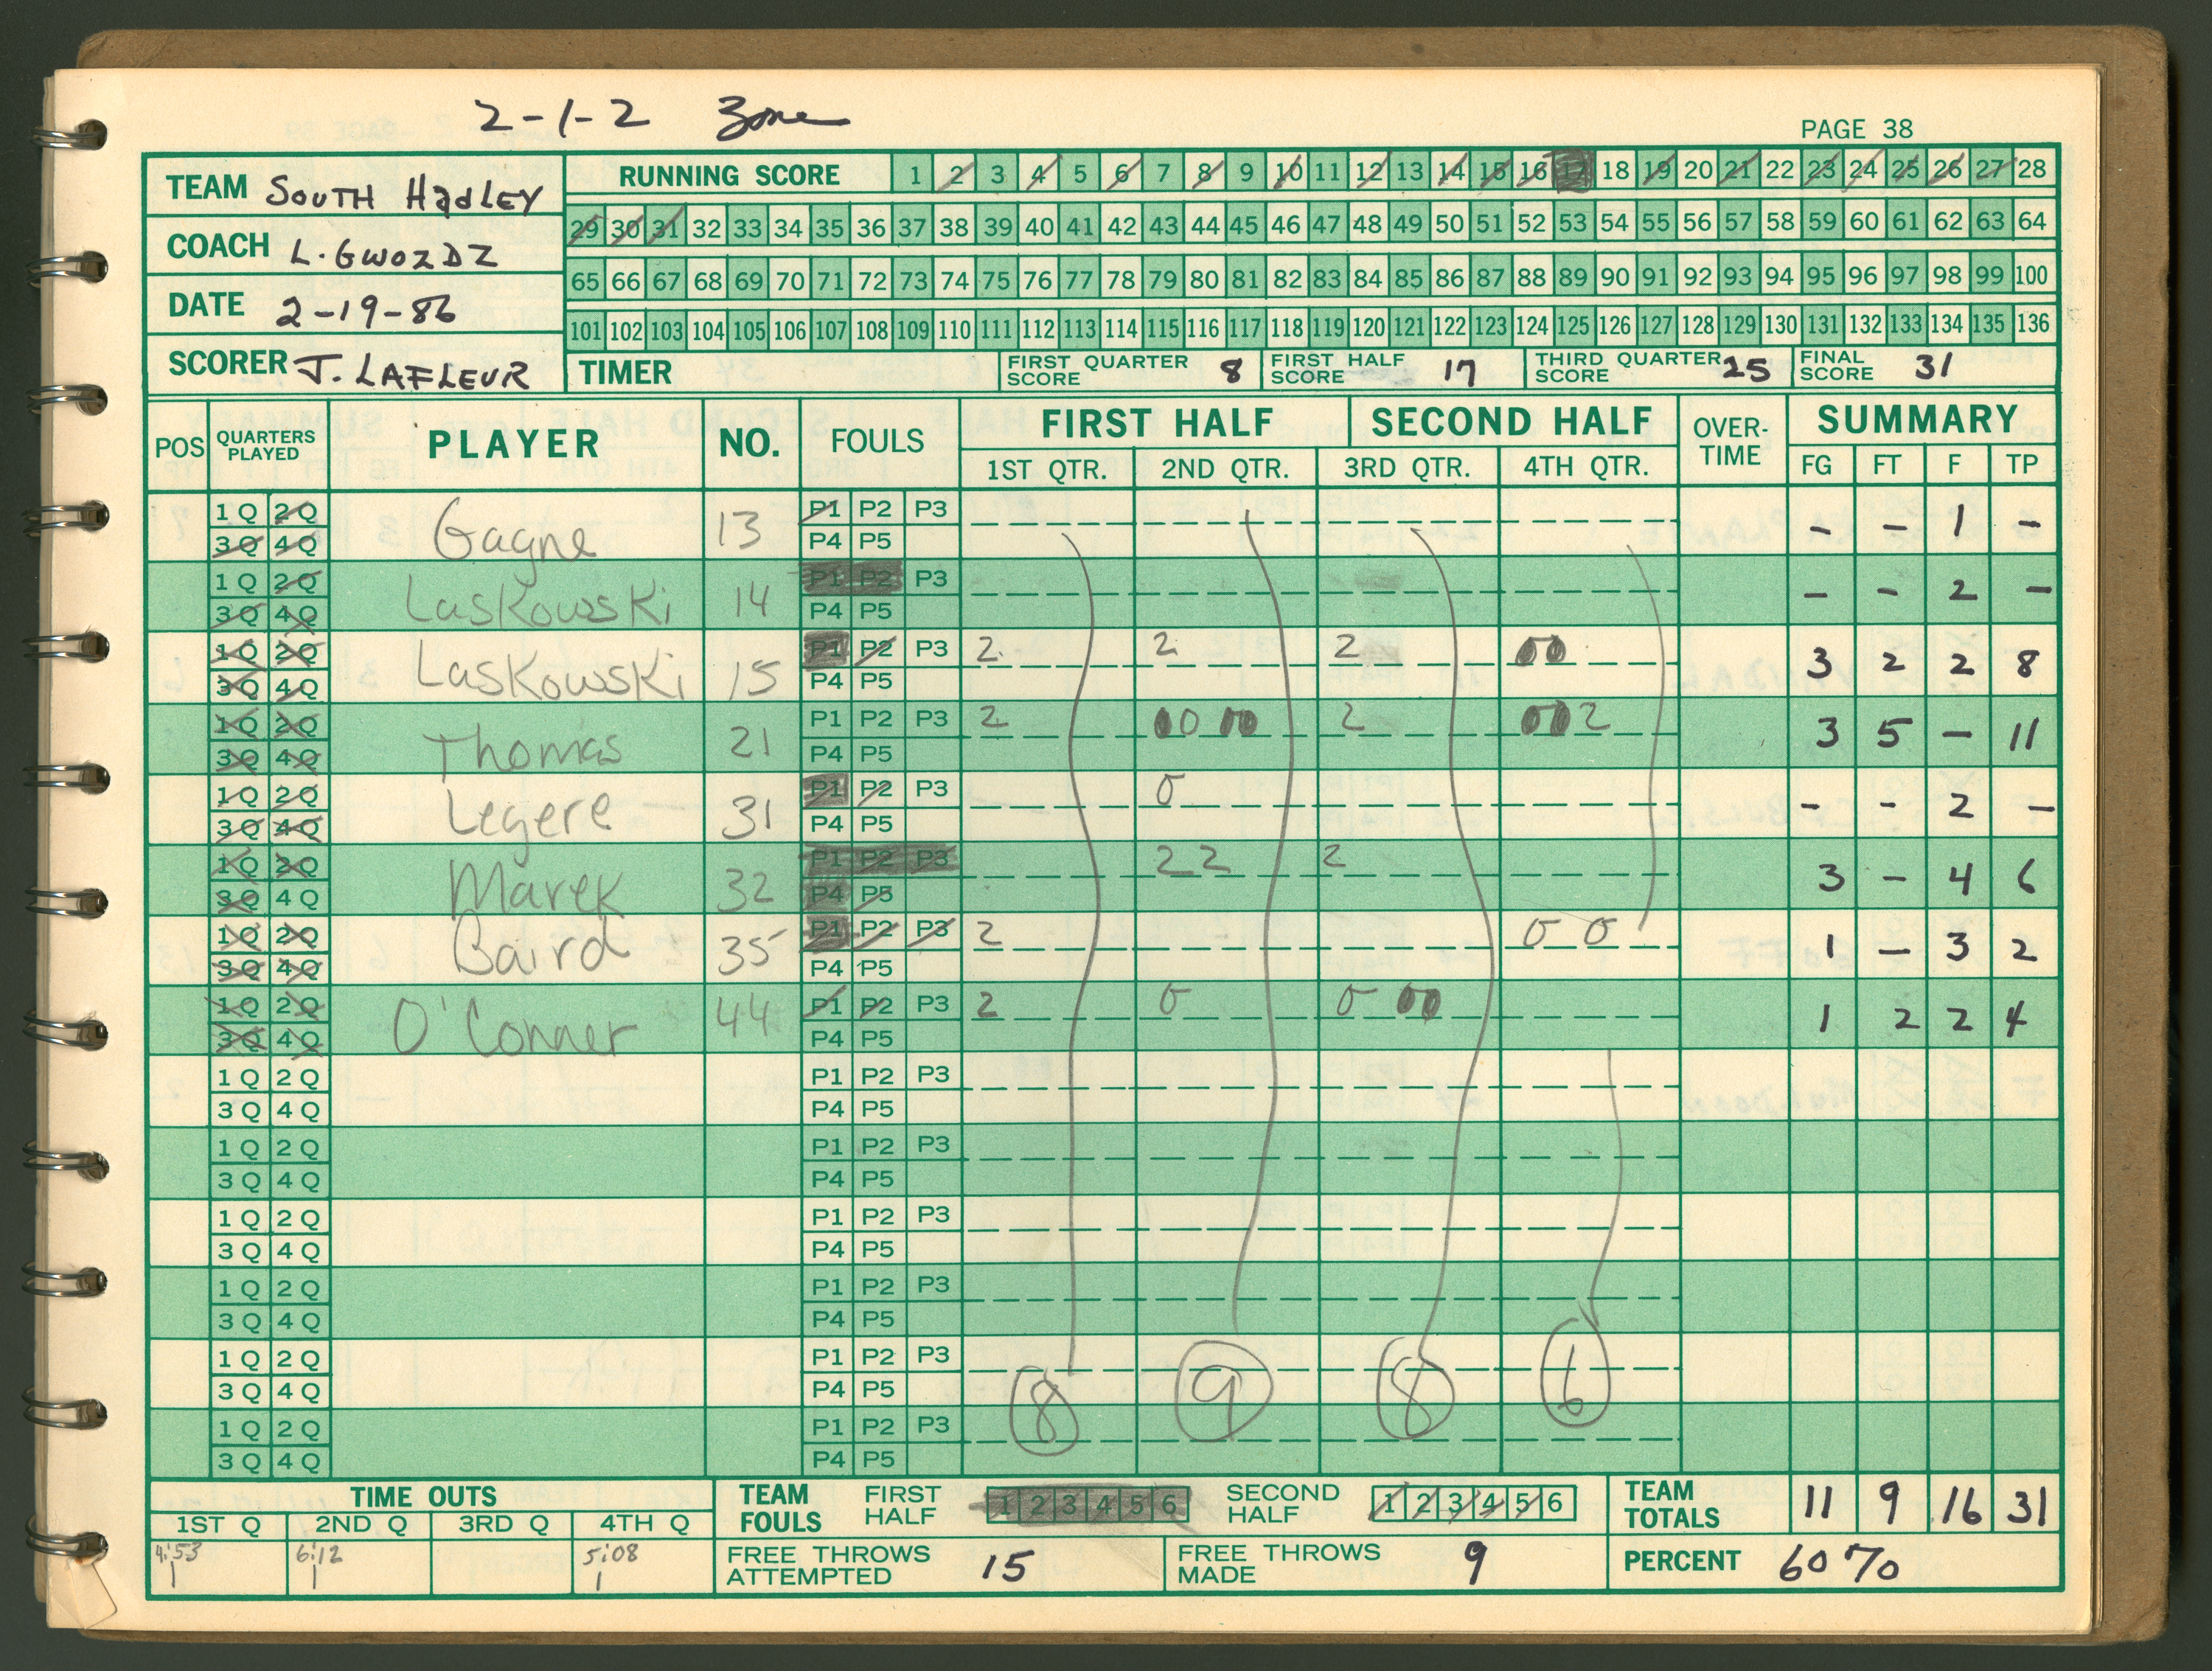 2-1-2 Zone
PAGE 38
TEAM SOUTH HADLEY
COACH L. GWOZDZ
DATE 2-19-86
SCORER J. LAFLEUR
RUNNING SCORE 1 2 3 4 5 6 7 8 9 10 11 12 13 14 15 16 17 18 19 20 21 22 23 24 25 26 27 28
29 30 31 32 33 34 35 36 37 38 39 40 41 42 43 44 45 46 47 48 49 50 51 52 53 54 55 56 57 58 59 60 61 62 63 64
65 66 67 68 69 70 71 72 73 74 75 76 77 78 79 80 81 82 83 84 85 86 87 88 89 90 91 92 93 94 95 96 97 98 99 100
101 102 103 104 105 106 107 108 109 110 111 112 113 114 115 116 117 118 119 120 121 122 123 124 125 126 127 128 129 130 131 132 133 134 135 136
TIMER FIRST QUARTER SCORE 8 FIRST HALF SCORE 17 THIRD QUARTER SCORE 25 FINAL SCORE 31
POS QUARTERS PLAYED PLAYER NO. FOULS FIRST HALF SECOND HALF OVER-TIME SUMMARY
1ST QTR. 2ND QTR. 3RD QTR. 4TH QTR. FG FT F TP
1Q 2Q Gagne 13 P1 P2 P3 - - 1 -
3Q 4Q P4 P5
1Q 2Q Laskowski 14 P1 P2 P3 - - 2 -
3Q 4Q P4 P5
1Q 2Q Laskowski 15 P1 P2 P3 2 2 2 00 3 2 2 8
3Q 4Q P4 P5
1Q 2Q Thomas 21 P1 P2 P3 2 00 00 2 002 3 5 - 11
3Q 4Q P4 P5
1Q 2Q Legere 31 P1 P2 P3 0 - - 2 -
3Q 4Q P4 P5
1Q 2Q Marek 32 P1 P2 P3 2 2 2 3 - 4 6
3Q 4Q P4 P5
1Q 2Q Baird 35 P1 P2 P3 2 0 0 1 - 3 2
3Q 4Q P4 P5
1Q 2Q O'Conner 44 P1 P2 P3 2 0 0 00 1 2 2 4
3Q 4Q P4 P5
1Q 2Q P1 P2 P3
3Q 4Q P4 P5
1Q 2Q P1 P2 P3
3Q 4Q P4 P5
1Q 2Q P1 P2 P3
3Q 4Q P4 P5
1Q 2Q P1 P2 P3
3Q 4Q P4 P5
1Q 2Q P1 P2 P3
3Q 4Q P4 P5
8 9 8 6
1Q 2Q P1 P2 P3
3Q 4Q P4 P5
TIME OUTS
1ST Q 2ND Q 3RD Q 4TH Q
4:53 6:12 5:08
1 1 1
TEAM FOULS FIRST HALF 1 2 3 4 5 6 SECOND HALF 1 2 3 4 5 6
FREE THROWS ATTEMPTED 15 FREE THROWS MADE 9
TEAM TOTALS 11 9 16 31
PERCENT 60%